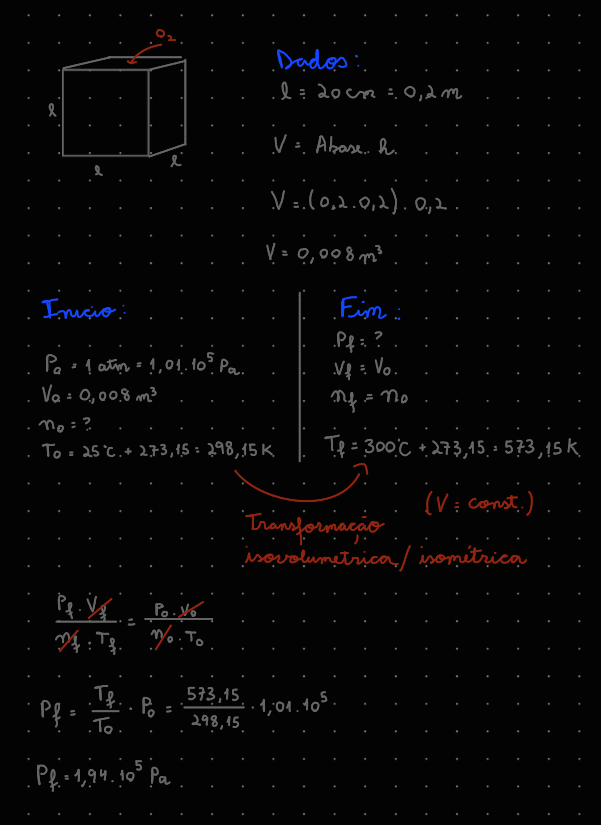 O₂
l
l
l
Dados:
l = 20 cm = 0,2 m
V = Abase . h
V = (0,2 . 0,2) . 0,2
V = 0,008 m³
Inicio:
Pa = 1 atm = 1,01.10⁵ Pa
Va = 0,008 m³
n₀ = ?
T₀ = 25°C + 273,15 = 298,15 K
Fim:
Pf = ?
Vf = V₀
nf = n₀
Tf = 300°C + 273,15 = 573,15 K
(V = const.)
Transformação
isovolumetrica / isométrica
Pf . Vf / nf . Tf = P₀ . V₀ / n₀ . T₀
Pf = Tf / T₀ . P₀ = 573,15 / 298,15 . 1,01.10⁵
Pf = 1,94.10⁵ Pa